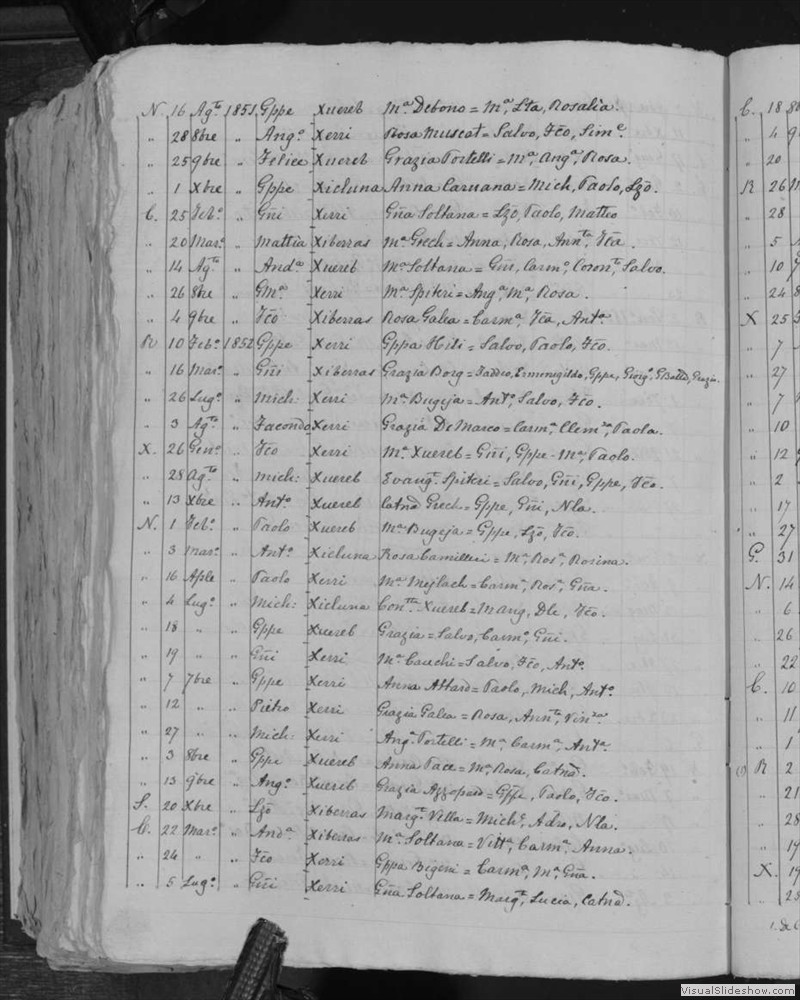 N. 16 Agto 1851 Gppe Xuereb Ma Debono = Ma, Lta, Rosalia.
" 28 8bre " Ango Xerri Rosa Muscat = Salvo, Fco, Sime.
" 25 9bre " Felice Xuereb Grazia Portelli = Ma, Anga, Rosa.
" 1 Xbre " Gppe Xicluna Anna Caruana = Mich, Paolo, Lzo.
C. 25 Febo " Gñi Xerri Gña Soltana = Lzo, Paolo, Matteo
" 20 Maro " Mattia Xiberras Ma Grech = Anna, Rosa, Annta, Fca.
" 14 Agto " Anda Xuereb Ma Soltana = Gñi, Carmo, Coronto, Salvo.
" 26 8bre " Gma Xerri Ma Spiteri = Anga, Ma, Rosa.
" 4 9bre " Fco Xiberras Rosa Galea = Carma, Fca, Anta
R 10 Febo 1852 Gppe Xerri Gppa Hili = Salvo, Paolo, Fco.
" 16 Maro " Gñi Xiberras Grazia Borg = Taddeo, Ermenegildo, Gppe, Giorgo, GBatta, Grazia.
" 26 Lugo " Mich: Xerri Ma Bugeja = Anto, Salvo, Fco.
" 3 Agto " Facondo Xerri Grazia De Marco = Carma, Clemza, Paola.
X. 26 Geno " Fco Xerri Ma Xuereb = Gñi, Gppe - Ma, Paolo.
" 28 Agto " Mich: Xuereb Evanga Spiteri = Salvo, Gñi, Gppe, Fco.
" 13 Xbre " Anto Xuereb Catna Grech = Gppe, Gñi, Nla.
N. 1 Febo " Paolo Xuereb Ma Bugeja = Gppe, Lzo, Fco.
" 3 Maro " Anto Xicluna Rosa Camilleri = Ma, Rosa, Rosina.
" 16 Aple " Paolo Xerri Ma Mejlach = Carma, Rosa, Gña.
" 4 Lugo " Mich: Xicluna Xuereb = Marg, Fco.
" 18 " " Gppe Xuereb Grazia = Salvo, Carmo, Gñi.
" 19 " " Gñi Xerri Ma Cauchi = Salvo, Fco, Anto.
" 7 7bre " Gppe Xerri Anna Attard = Paolo, Mich, Anto.
" 12 " " Pietro Xerri Grazia Galea = Rosa, Annta, Vinza
" 27 " " Mich: Xerri Anga Portelli = Ma, Carma, Anta.
" 3 8bre " Gppe Xuereb Anna Pace = Ma, Rosa, Catna.
" 13 9bre " Ango Xuereb Grazia Azzopard = Gppe, Paolo, Fco.
S. 20 Xbre " Lzo Xiberras Margta Vella = Mich, Nla.
C. 22 Maro " Anda Xiberras Ma Soltana = Vitta, Carma, Anna.
" 24 " " Fco Xerri Gppa Bigeni = Carma, Ma, Gña.
" 5 Lugo " Gñi Xerri Gña Soltana = Margta, Lucia, Catna.
C. 18
" 4
" 20
R 26
" 28
" 5
" 10
" 24
X 25
" 7
" 27
" 7
" 10
" 12
" 2
" 17
" 27
G. 31
N. 14
" 6
" 26
" 22
C. 10
" 11
" 1
R 2
" 21
" 28
" 19
X. 19
VisualSlideshow.com